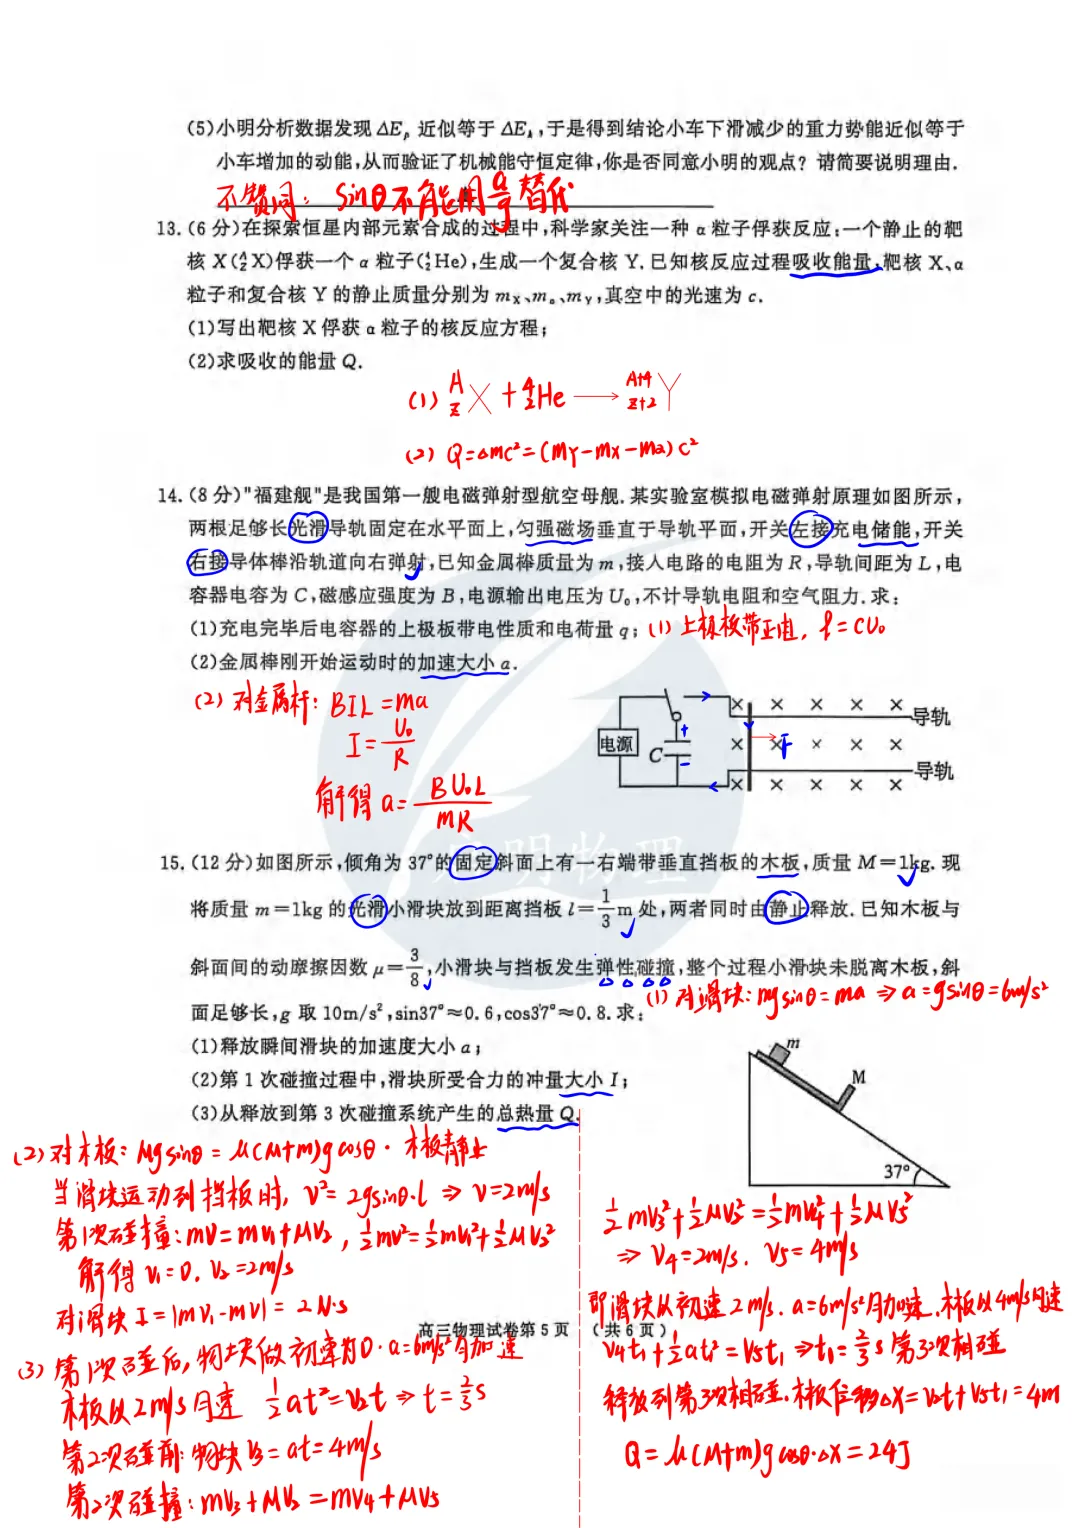 (5)小明分析数据发现 ΔEₚ 近似等于 ΔEₖ,于是得到结论小车下滑减少的重力势能近似等于
小车增加的动能,从而验证了机械能守恒定律,你是否同意小明的观点? 请简要说明理由.
不赞同: sinθ不能用a/g替代
13.(6 分)在探索恒星内部元素合成的过程中,科学家关注一种 α 粒子俘获反应:一个静止的靶
核 X(ᴬ_Z X)俘获一个 α 粒子(⁴₂He),生成一个复合核 Y.已知核反应过程吸收能量,靶核 X、α
粒子和复合核 Y 的静止质量分别为 m_X、m_α、m_Y,真空中的光速为 c.
(1)写出靶核 X 俘获 α 粒子的核反应方程;
(2)求吸收的能量 Q.
(1) ᴬ_Z X + ⁴₂He → ᴬ⁺⁴_Z+2 Y
(2) Q=Δmc²=(m_Y-m_X-mα)c²
14.(8 分)"福建舰"是我国第一艘电磁弹射型航空母舰.某实验室模拟电磁弹射原理如图所示,
两根足够长光滑导轨固定在水平面上,匀强磁场垂直于导轨平面,开关左接充电储能,开关
右接导体棒沿轨道向右弹射,已知金属棒质量为 m,接入电路的电阻为 R,导轨间距为 L,电
容器电容为 C,磁感应强度为 B,电源输出电压为 U₀,不计导轨电阻和空气阻力.求:
(1)充电完毕后电容器的上极板带电性质和电荷量 q;
(1) 上极板带正电, q=CU₀
(2)金属棒刚开始运动时的加速大小 a.
(2) 对金属杆: BIL=ma
I=U₀/R
解得 a=BU₀L/mR
电源
C
+
-
F
导轨
导轨
昇明物理
15.(12 分)如图所示,倾角为 37°的固定斜面上有一右端带垂直挡板的木板,质量 M=1kg.现
将质量 m=1kg 的光滑小滑块放到距离挡板 l=1/3 m 处,两者同时由静止释放.已知木板与
斜面间的动摩擦因数 μ=3/8,小滑块与挡板发生弹性碰撞,整个过程小滑块未脱离木板,斜
面足够长,g 取 10m/s²,sin37°≈0.6,cos37°≈0.8.求:
(1) 对滑块: mgsinθ=ma ⇒ a=gsinθ=6m/s²
(1)释放瞬间滑块的加速度大小 a;
(2)第 1 次碰撞过程中,滑块所受合力的冲量大小 I;
(3)从释放到第 3 次碰撞系统产生的总热量 Q.
m
M
37°
(2) 对木板: Mgsinθ=μ(M+m)gcosθ. 木板静止
当滑块运动到挡板时, v²=2gsinθ·l ⇒ v=2m/s
第1次碰撞: mv=mv₁+Mv₂, ½mv²=½mv₁²+½Mv₂²
解得 v₁=0. v₂=2m/s
对滑块 I=|mv₁-mv|=2N·s
(3) 第1次碰后,物块做初速为0. a=6m/s²匀加速
木板以2m/s匀速 ½at²=v₂t ⇒ t=⅔s
第2次碰前: 物块 v₃=at=4m/s
第2次碰撞: mv₃+Mv₂=mv₄+Mv₅
½mv₃²+½Mv₂²=½mv₄²+½Mv₅²
⇒ v₄=2m/s. v₅=4m/s
即滑块以初速2m/s. a=6m/s²匀加速.木板以4m/s匀速
v₄t₁+½at₁²=v₅t₁ ⇒ t₁=⅔s 第3次相碰
释放到第3次相碰.木板位移Δx=v₂t+v₅t₁=4m
Q=μ(M+m)gcosθ·Δx=24J
高三物理试卷第 5 页 (共 6 页)